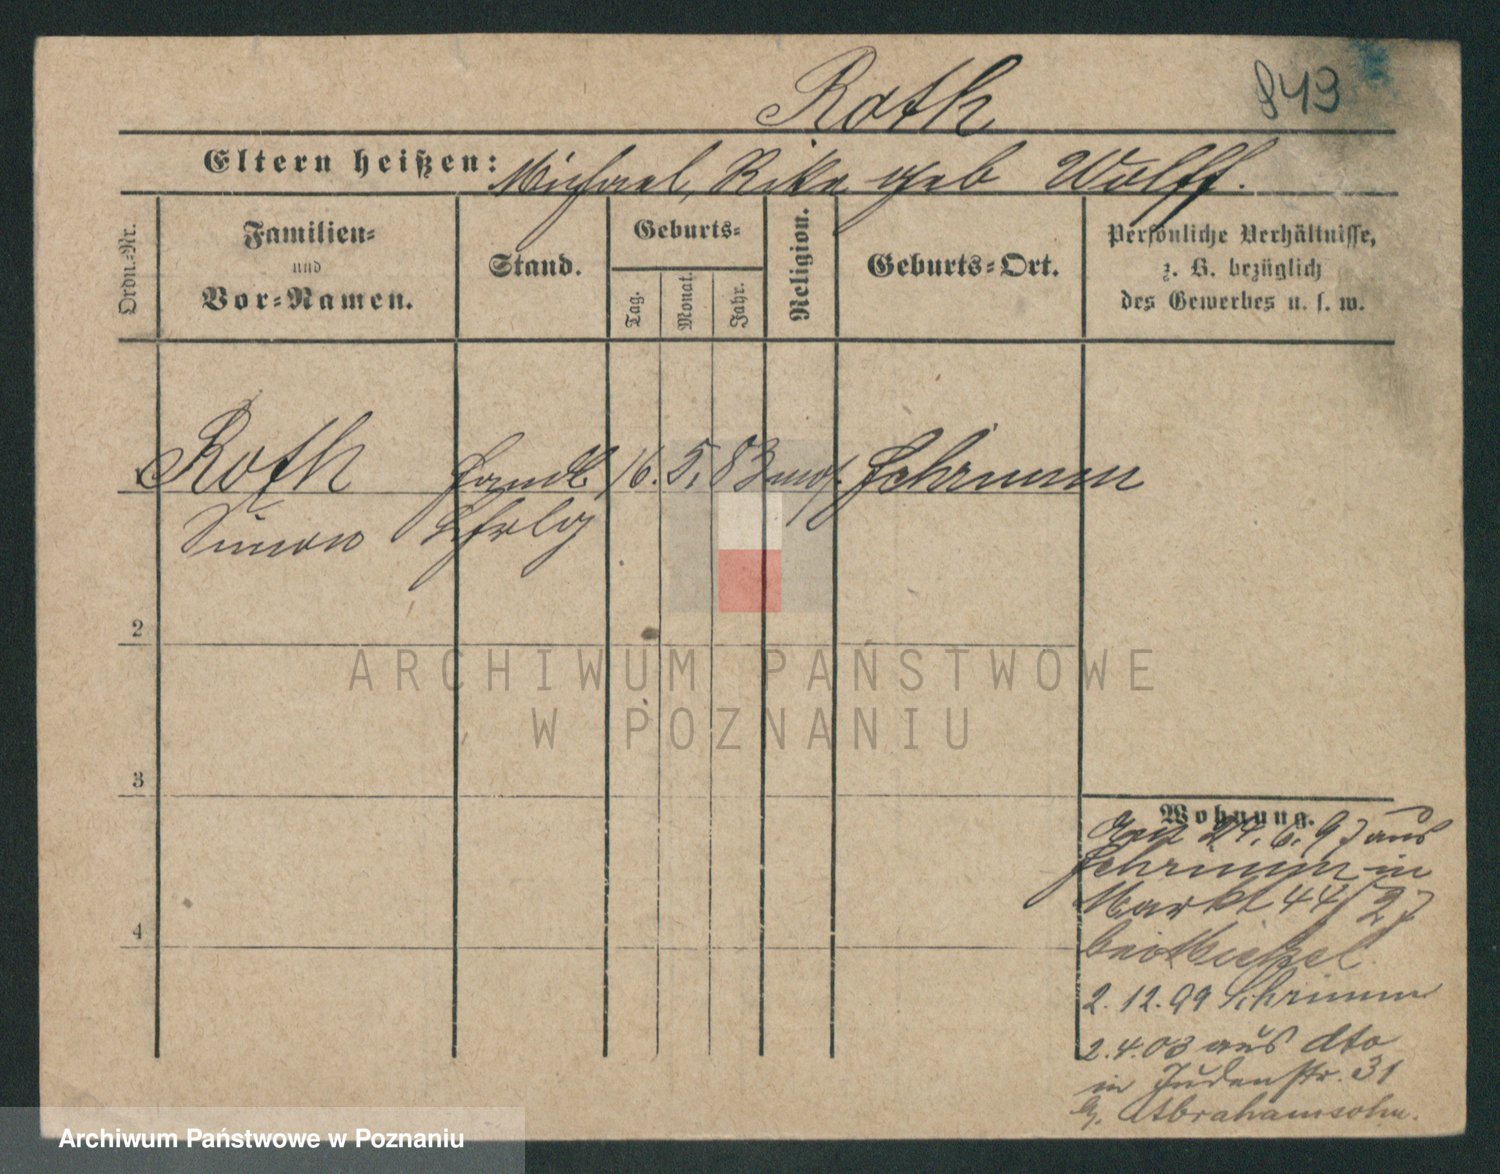 Roth
849
Eltern heißen: Michael, Rike geb Wolff.
Ordn.-Nr.
Familien-
und
Vor-Namen.
Stand.
Geburts-
Tag.
Monat.
Jahr.
Religion.
Geburts-Ort.
Persönliche Verhältnisse,
z. B. bezüglich
des Gewerbes u. s. w.
Roth Handl. 16. 5. 83 mos. Schrimm
Simon Lehrlg
2
ARCHIWUM PAŃSTWOWE
W POZNANIU
3
Wohnung.
24. 6. 97 aus
Schrimm in
Markt 44/
bei
4
2. 12. 99 Schrimm
2. 4. 03 aus dto
in Judenstr. 31
b. Abrahamsohn.
Archiwum Państwowe w Poznaniu